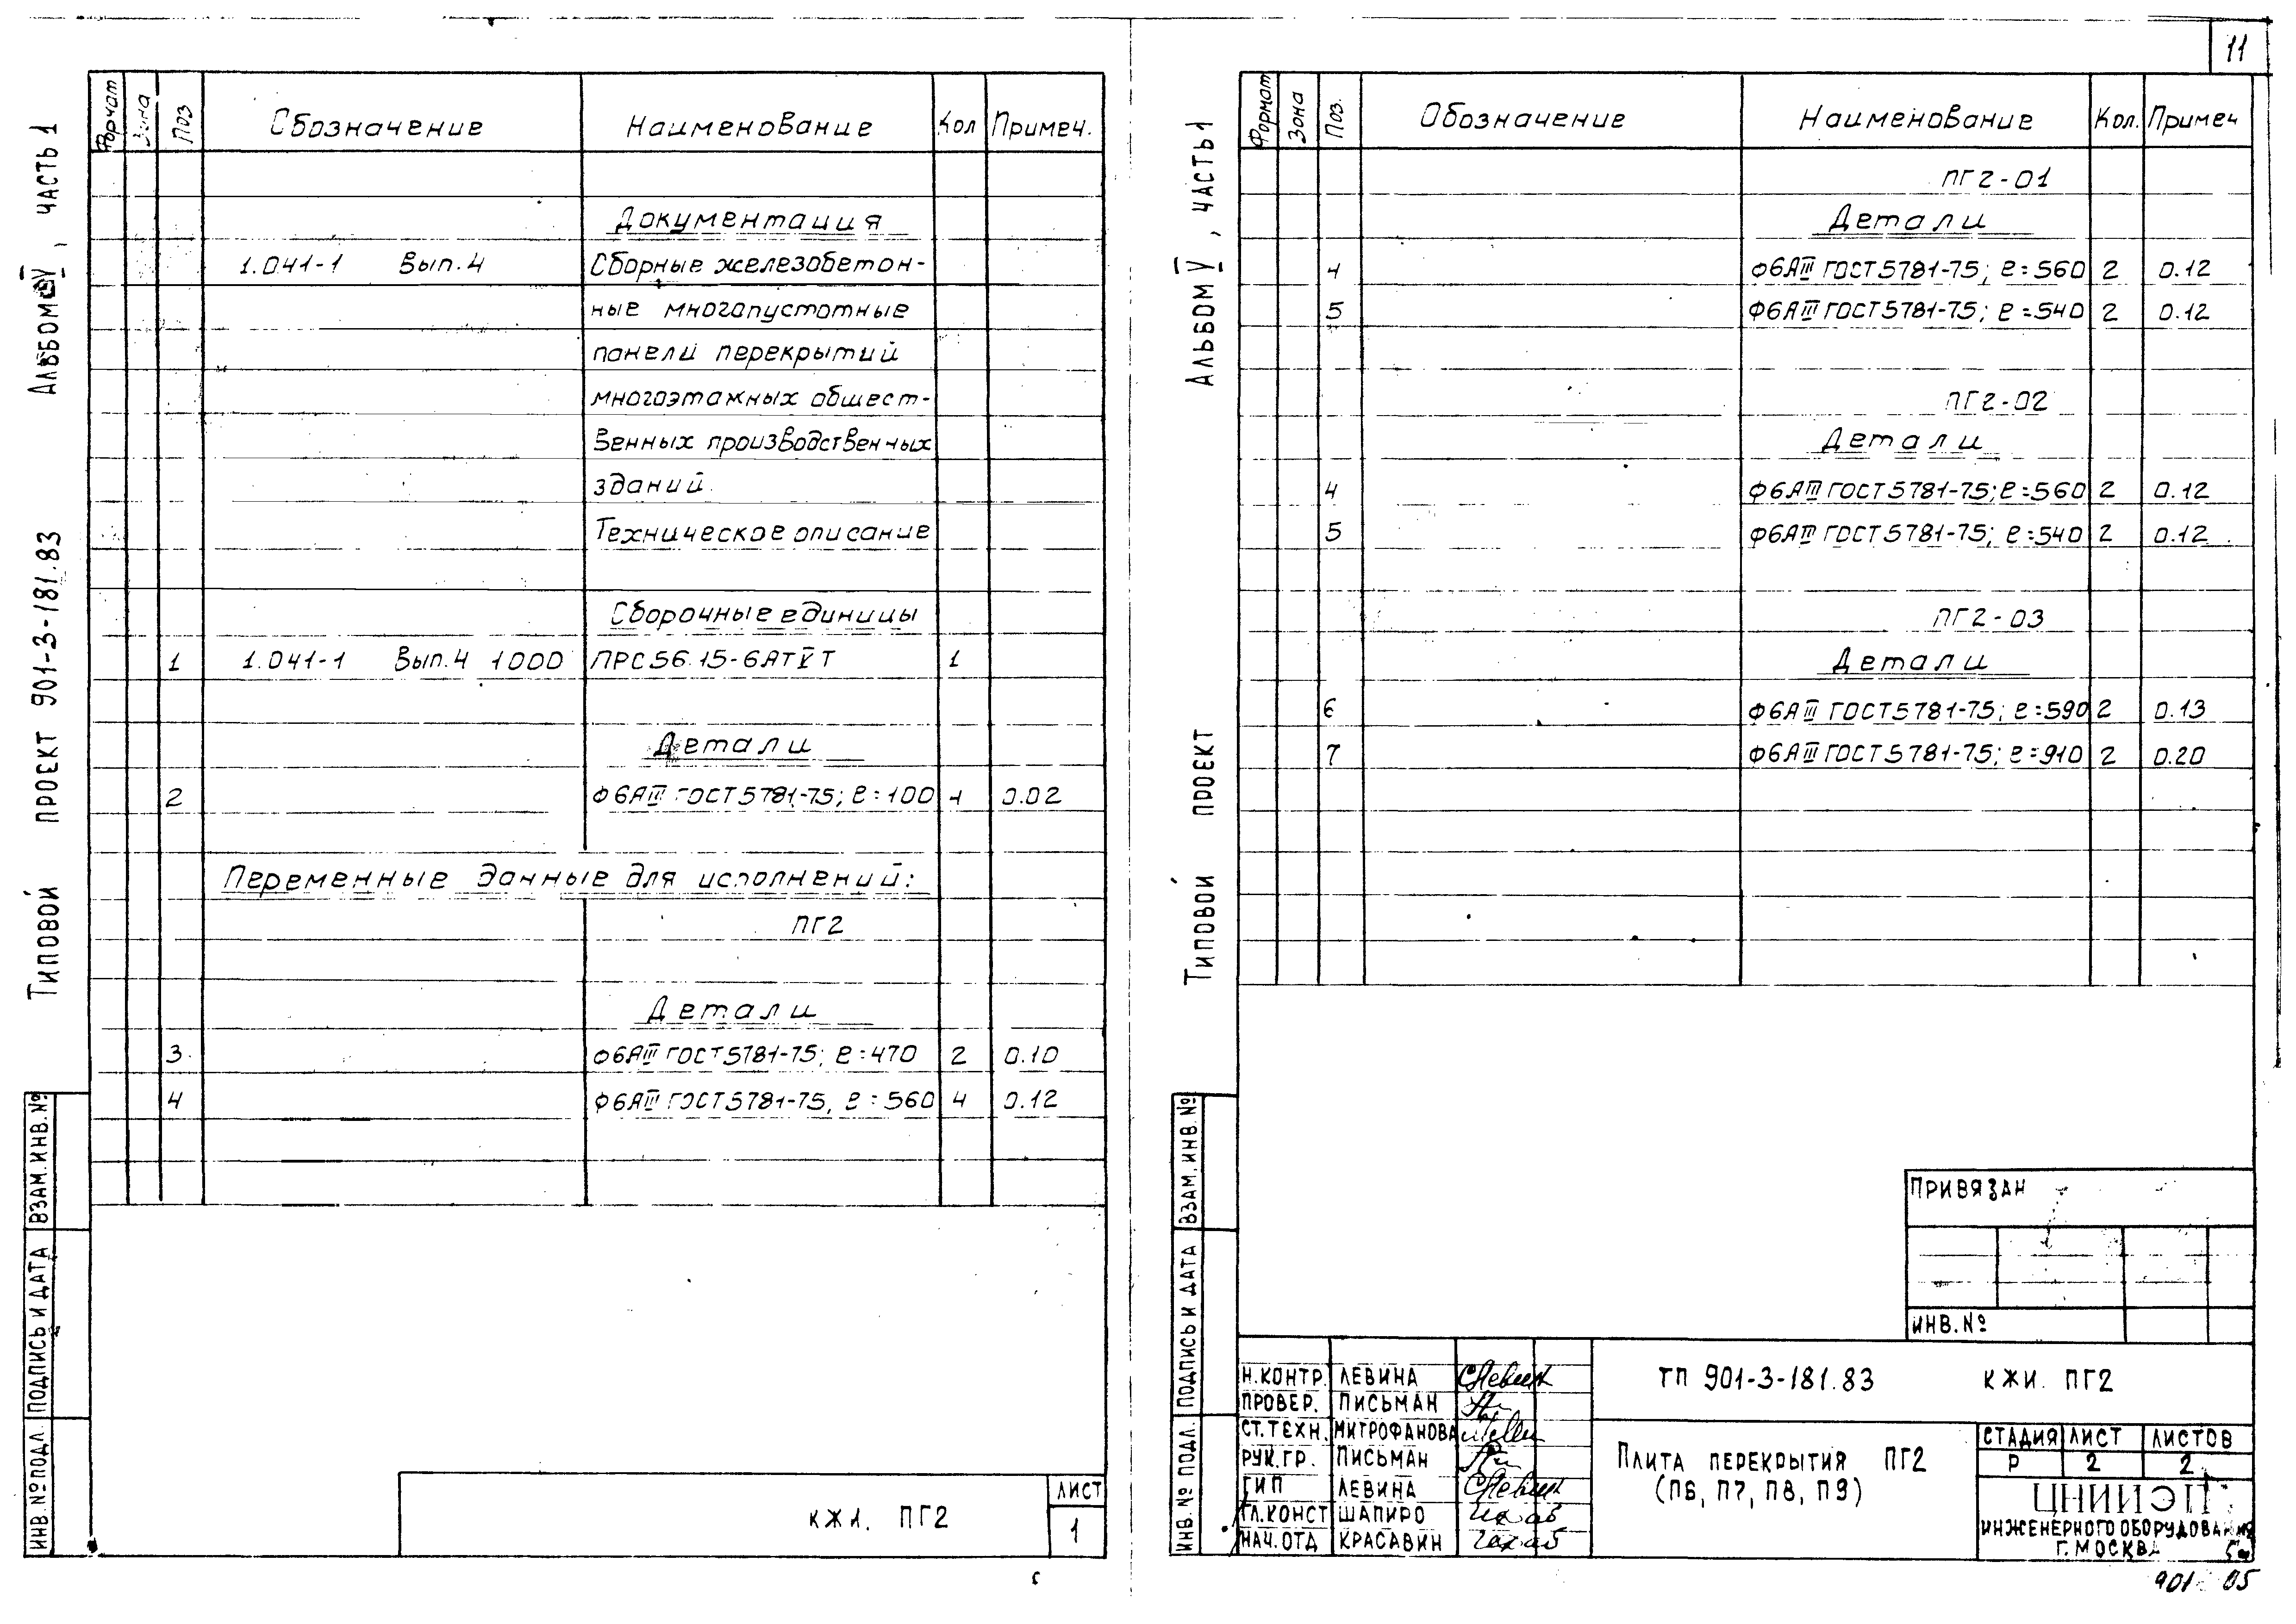 11
Типовой проект 901-3-181.83 Альбом V, часть 1
Формат Зона Поз Обозначение Наименование Кол Примеч.
Документация
1.041-1 Вып.4 Сборные железобетон-
ные многопустотные
панели перекрытий
многоэтажных общест-
венных производственных
зданий.
Техническое описание
Сборочные единицы
1 1.041-1 Вып.4 1000 ПРС56.15-6АтVТ 1
Детали
2 Ф6АIII ГОСТ5781-75; ℓ=100 4 0.02
Переменные данные для исполнений:
ПГ2
Детали
3 Ф6АIII ГОСТ5781-75; ℓ=470 2 0.10
4 Ф6АIII ГОСТ5781-75, ℓ=560 4 0.12
ВЗАМ.ИНВ.№
ПОДПИСЬ И ДАТА
ИНВ.№ПОДЛ
КЖИ. ПГ2
ЛИСТ
1
Типовой проект Альбом V, часть 1
Формат Зона Поз. Обозначение Наименование Кол. Примеч
ПГ2-01
Детали
4 Ф6АIII ГОСТ5781-75; ℓ=560 2 0.12
5 Ф6АIII ГОСТ5781-75; ℓ=540 2 0.12
ПГ2-02
Детали
4 Ф6АIII ГОСТ5781-75; ℓ=560 2 0.12
5 Ф6АIII ГОСТ5781-75; ℓ=540 2 0.12
ПГ2-03
Детали
6 Ф6АIII ГОСТ5781-75; ℓ=590 2 0.13
7 Ф6АIII ГОСТ5781-75; ℓ=910 2 0.20
ВЗАМ.ИНВ.№
ПОДПИСЬ И ДАТА
ИНВ.№ ПОДЛ.
ПРИВЯЗАН
ИНВ.№
Н.КОНТР. ЛЕВИНА
ПРОВЕР. ПИСЬМАН
СТ.ТЕХН. МИТРОФАНОВА
РУК.ГР. ПИСЬМАН
ГИП ЛЕВИНА
ГЛ.КОНСТ ШАПИРО
НАЧ.ОТД КРАСАВИН
ТП 901-3-181.83 КЖИ. ПГ2
Плита перекрытия ПГ2
(П6, П7, П8, П9)
СТАДИЯ ЛИСТ ЛИСТОВ
Р 2 2
ЦНИИЭП
ИНЖЕНЕРНОГО ОБОРУДОВАНИЯ
Г.МОСКВА
901 05